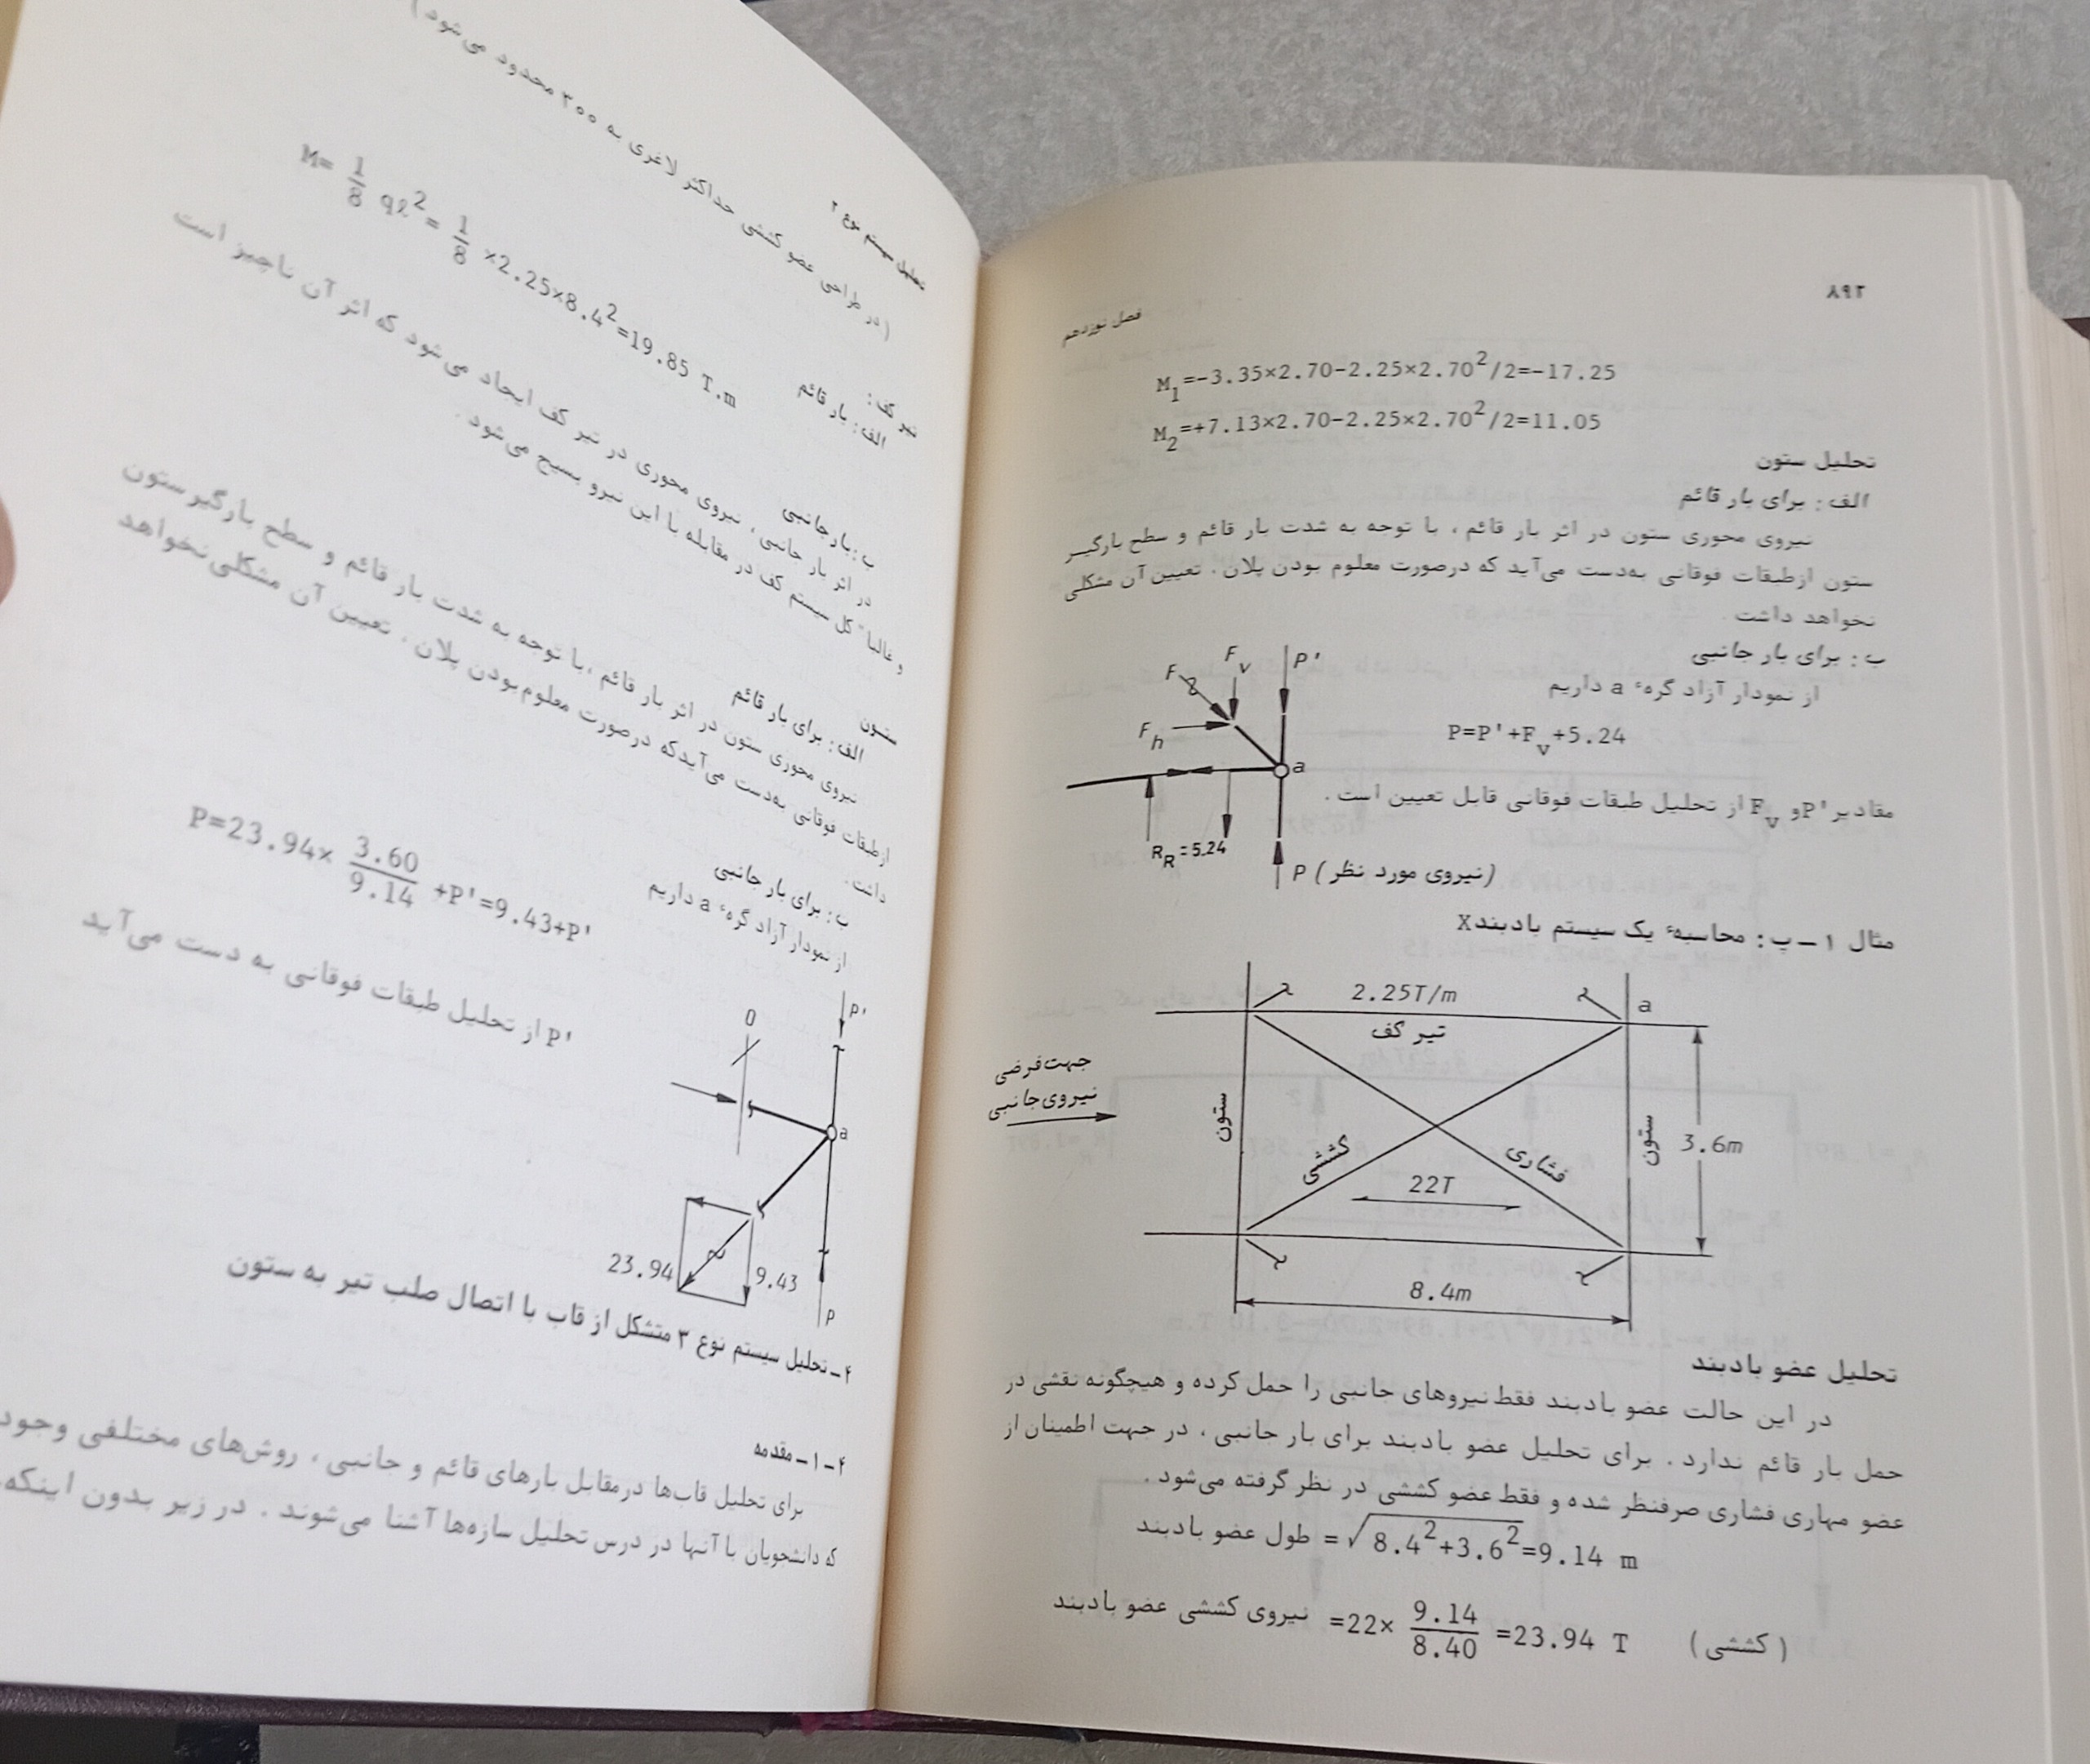 ۲۹۸
فصل نوزدهم
M1=-3.35×2.70-2.25×2.70²/2=-17.25
M2=+7.13×2.70-2.25×2.70²/2=11.05
تحلیل ستون
الف: برای بار قائم
نیروی محوری ستون در اثر بار قائم، با توجه به شدت بار قائم و سطح بارگیر
ستون ازطبقات فوقانی به‌دست می‌آید که درصورت معلوم بودن پلان. تعیین آن مشکلی
نخواهد داشت.
ب: برای بار جانبی
از نمودار آزاد گرهٔ a داریم
P=P'+Fv+5.24
مقادیر P' و Fv از تحلیل طبقات فوقانی قابل تعیین است.
F
Fv
P'
Fh
a
RR=5.24
P (نیروی مورد نظر)
مثال ۱ــ پ: محاسبهٔ یک سیستم بادبند X
2.25T/m
a
تیر کف
جهت فرضی
نیروی جانبی
ستون
کششی
فشاری
ستون
3.6m
22T
8.4m
تحلیل عضو بادبند
در این حالت عضو بادبند فقط نیروهای جانبی را حمل کرده و هیچگونه نقشی در
حمل بار قائم ندارد. برای تحلیل عضو بادبند برای بار جانبی، در جهت اطمینان از
عضو مهاری فشاری صرفنظر شده و فقط عضو کششی در نظر گرفته می‌شود.
طول عضو بادبند =√8.4²+3.6²=9.14 m
نیروی کششی عضو بادبند =22× 9.14/8.40 =23.94 T (کششی)
تحلیل سیستم نوع ۲
(در طراحی عضو کششی حداکثر لاغری به ۳۰۰ محدود می‌شود)
تیر کف:
الف: بار قائم
M= 1/8 qℓ²= 1/8 ×2.25×8.4²=19.85 T.m
ب: بار جانبی
در اثر بار جانبی، نیروی محوری در تیر کف ایجاد می‌شود که اثر آن ناچیز است
و غالبا" کل سیستم کف در مقابله با این نیرو بسیج می‌شود.
ستون
الف: برای بار قائم
نیروی محوری ستون در اثر بار قائم، با توجه به شدت بار قائم و سطح بارگیر ستون
ازطبقات فوقانی به‌دست می‌آیدکه درصورت معلوم بودن پلان، تعیین آن مشکلی نخواهد
داشت.
ب: برای بار جانبی
از نمودار آزاد گرهٔ a داریم
P=23.94× 3.60/9.14 +P'=9.43+P'
P' از تحلیل طبقات فوقانی به دست می‌آید
0
P'
a
23.94
9.43
P
۴ــ تحلیل سیستم نوع ۳ متشکل از قاب با اتصال صلب تیر به ستون
۴ــ۱ــ مقدمه
برای تحلیل قاب‌ها درمقابل بارهای قائم و جانبی، روش‌های مختلفی وجود
که دانشجویان با آنها در درس تحلیل سازه‌ها آشنا می‌شوند. در زیر بدون اینکه